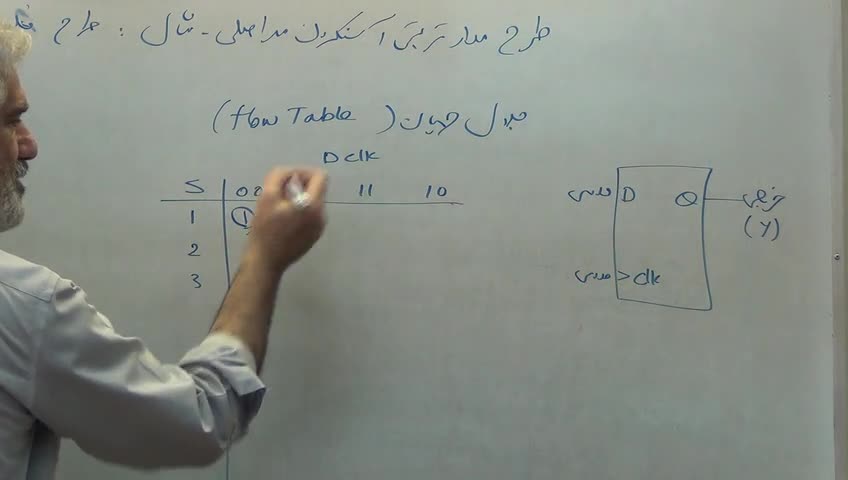 طرح مدار ترتیبی آسنکرون مد اصلی - مثال : طراحی
جدول جریان (flow Table)
D clk
S 00 11 10
1 1
2
3
ورودی D Q خروجی
(Y)
ورودی > clk